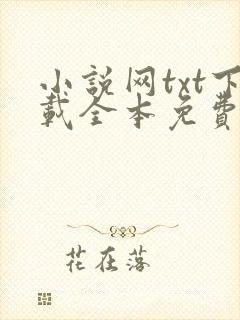 小説网txt下
載全本免費
花在落